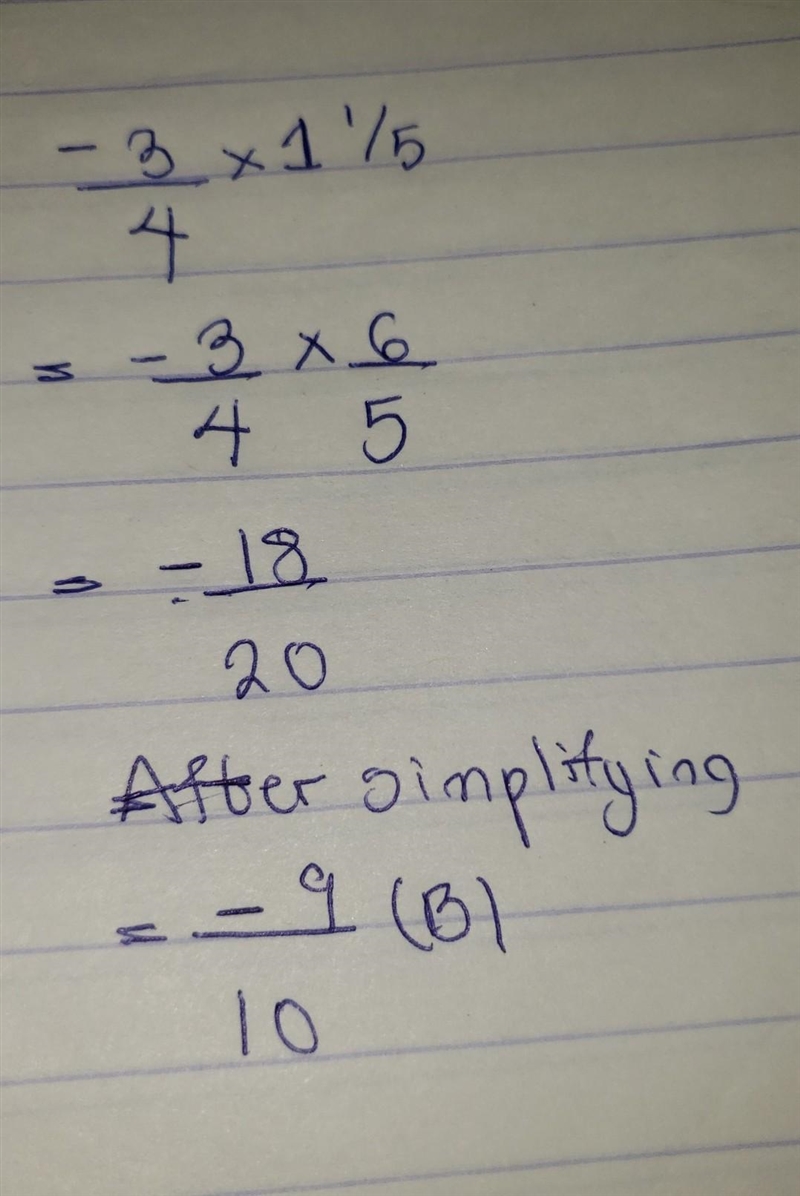 -3/4 × 1 1/5
= -3/4 × 6/5
= -18/20
After simplifying
= -9/10 (B)